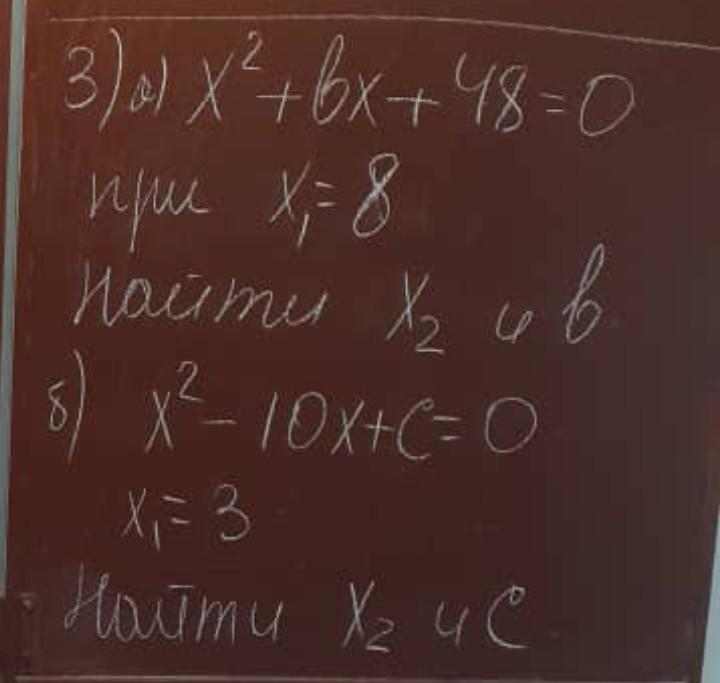 3) а) x² + bx + 48 = 0
при x₁ = 8
Найти x₂ и b
б) x² - 10x + c = 0
x₁ = 3
Найти x₂ и c